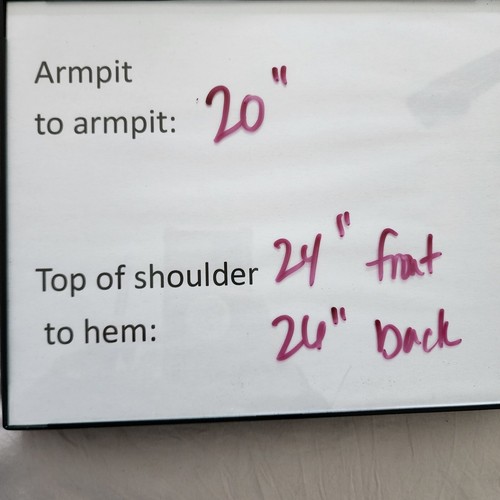 Armpit
to armpit: 20"
Top of shoulder 24" front
to hem: 26" back